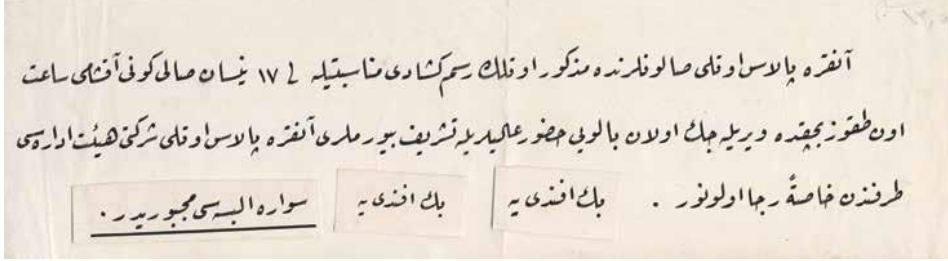 آنقره پالاس اوتلی صالونلرنده مذكور اوتلك رسم كشادی مناسبتیله ١٧ نیسان صالی كونی آقشامی ساعت
اون طقوز بچقده ویریله جك اولان بالویی حضور عالیلریله تشریف بیورملری آنقره پالاس اوتلی شركتی هیئت اداره سی
طرفندن خاصةً رجا اولونور . بك افندی یه بك افندی یه سواره البسه سی مجبوریدر .